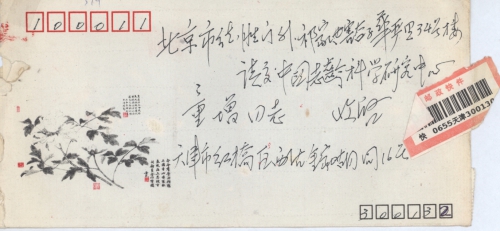 100011
北京市德胜门外祁家豁子华严里34号楼
请交中国老龄科学研究中心
增同志 收启
天津市红桥区西沽胡同16号
邮政快件
快 0655天津300130
300132